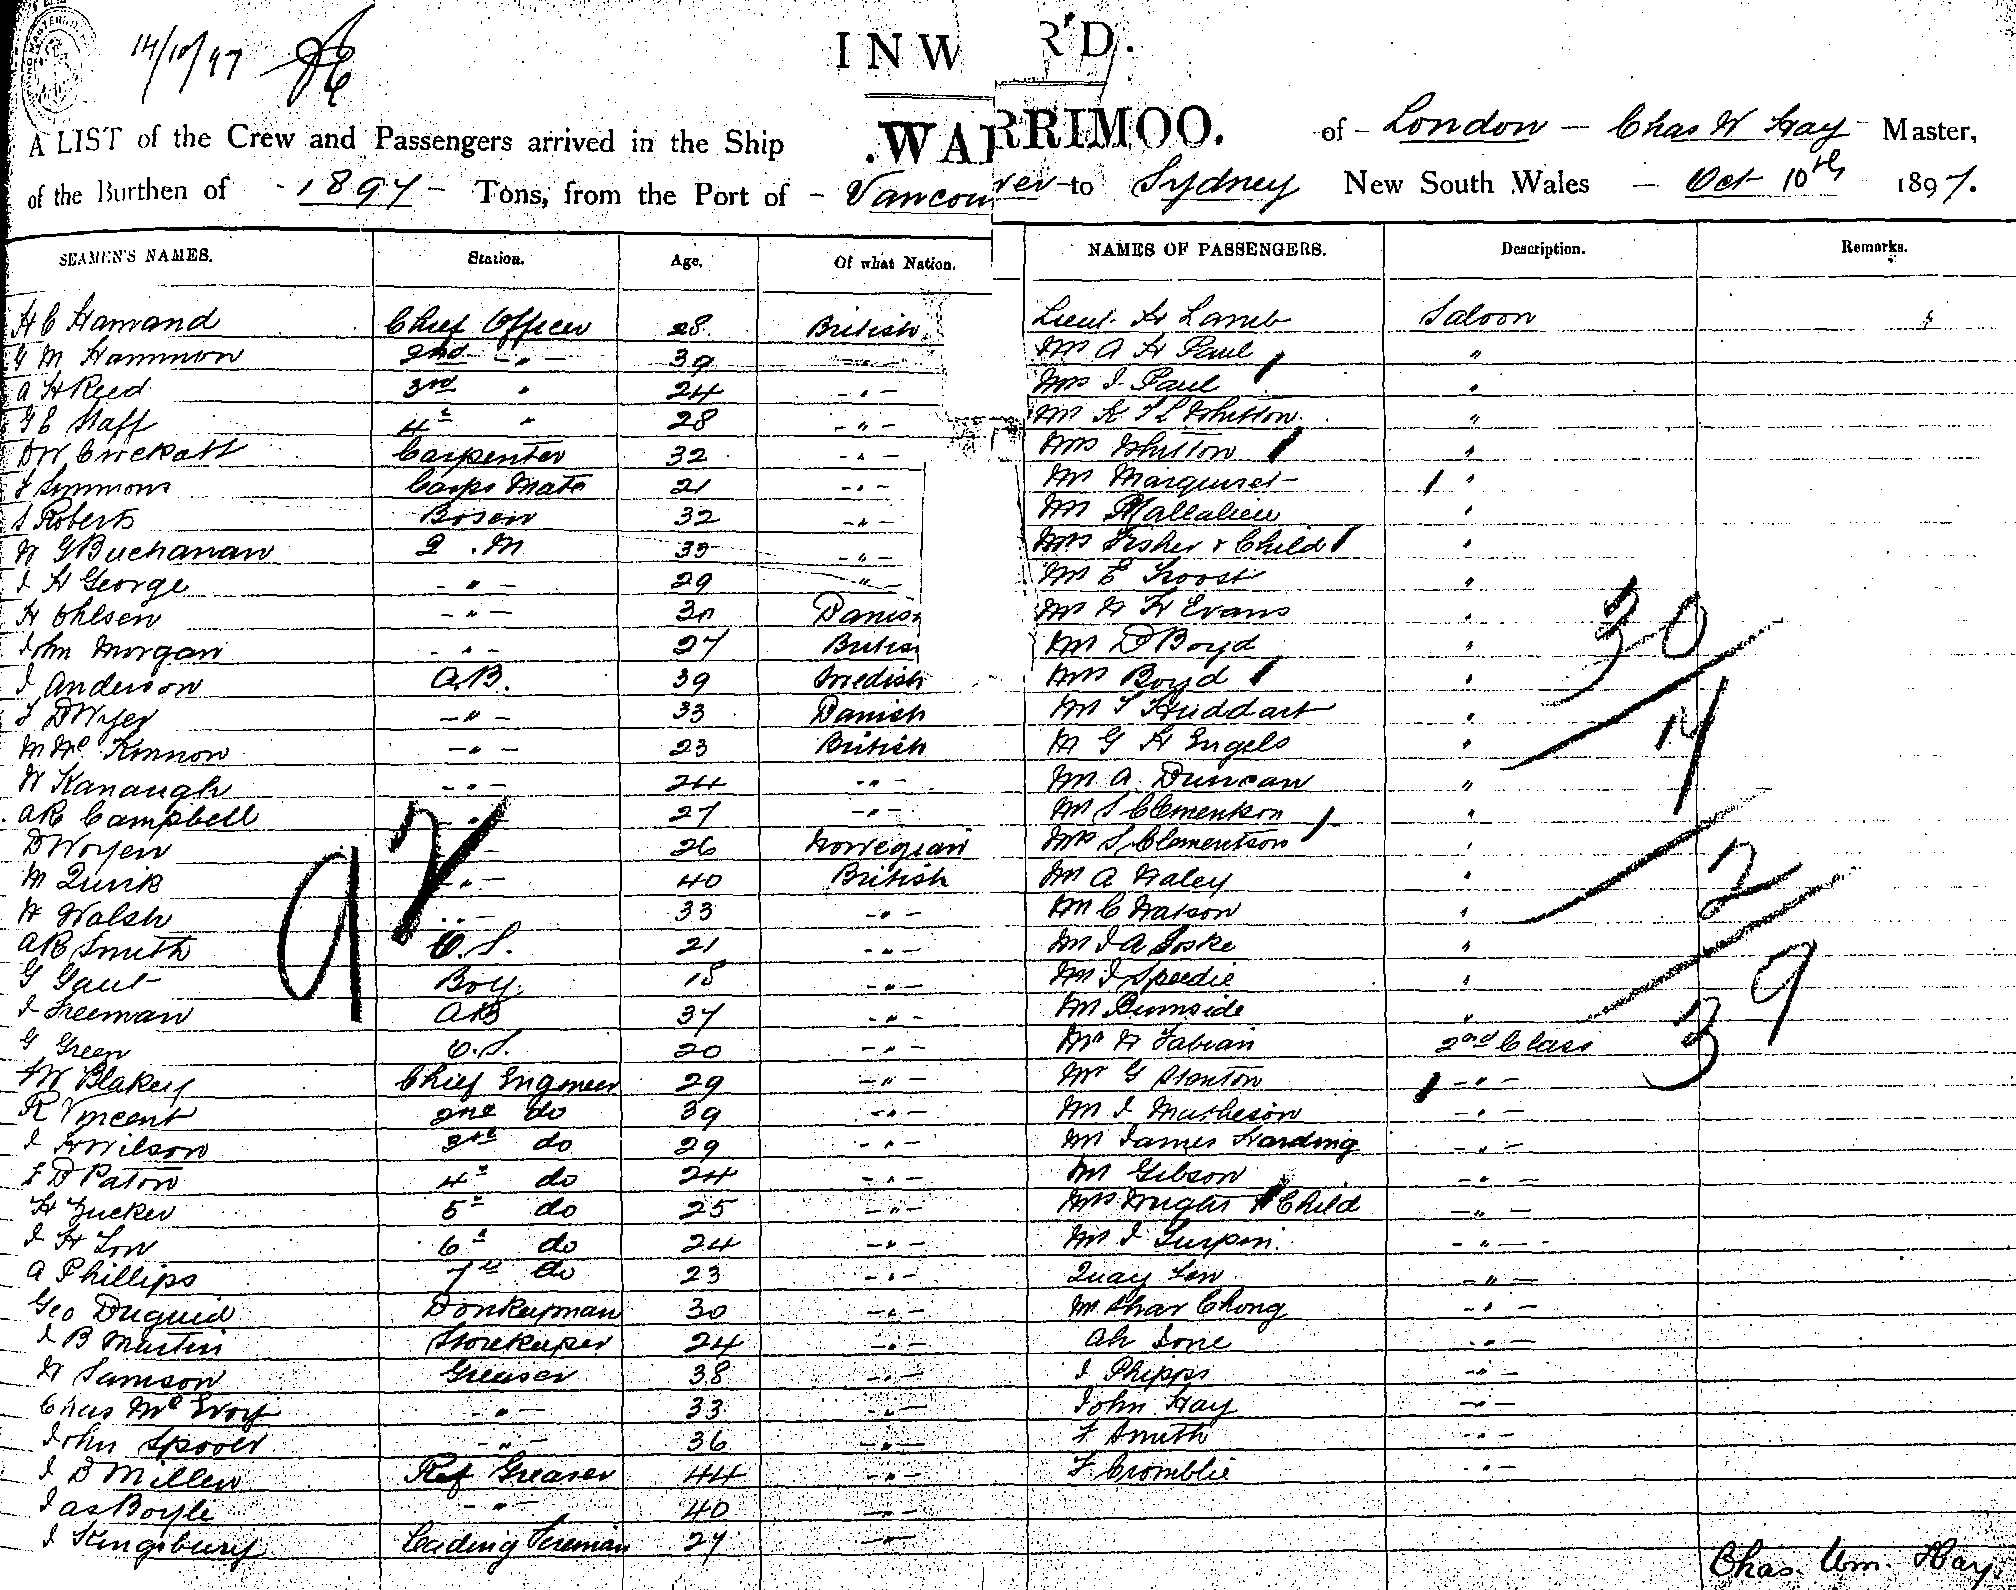 14/10/97
INW R'D.
A LIST of the Crew and Passengers arrived in the Ship .WARRIMOO. of - London - Chas W Hay Master,
of the Burthen of - 1897 - Tons, from the Port of - Vancouver - to Sydney New South Wales - Oct 10th 1897.
SEAMEN'S NAMES. Station. Age. Of what Nation. NAMES OF PASSENGERS. Description. Remarks.
H C Hamand Chief Officer 28 British Lieut. H Lamb Saloon "
G M Hammon 2nd - " - 39 - " - Mr A H Paul "
A H Reed 3rd " 24 - " - Mrs J. Paul "
G E Staff 4th " 28 - " - Mr K F L Whitton "
DW Crickatt Carpenter 32 - " - Mrs Whitton "
F Simmons Carps Mate 21 - " - Mr Marquiset "
S Roberts Bosen 32 - " - Mr Mallalieu "
W G Buchanan Q. M 33 - " - Mrs Fisher & Child "
J H George - " - 29 " Mr E Troost "
H Ohlsen - " - 30 Danis Mr W H Evans "
John Morgan - " - 27 Britis Mr D Boyd "
J Anderson A.B. 39 Swedish Mrs Boyd "
F DWyer - " - 33 Danish Mr F Huddart "
M McKinnon - " - 23 British Mr G H Engels "
W Kanaugh - " - 24 - " - Mr A. Duncan "
AR Campbell - " - 27 - " - Mr S Clementson "
DWoyen - " - 26 Norwegian Mrs S Clementson "
M Quirk - " - 40 British Mr A Haley "
W Walsh - " - 33 - " - Mr C Watson "
AR Smith O.S. 21 - " - Mr J A Joske "
G Gaut Boy 18 - " - Mr J Speedie "
J Freeman AB 37 - " - Mr Burnside "
G Green O.S. 20 - " - Mr W Fabian 2nd Class
Blakey Chief Engineer 29 - " - Mr G Stanton - " -
R Vincent 2nd do 39 - " - Mr J Matheson - " -
J H Wilson 3rd do 29 - " - Mr James Harding - " -
F D Paton 4th do 24 - " - Mr Gibson - " -
H Zucker 5th do 25 - " - Mrs Wright & Child - " -
J H Low 6th do 24 - " - Mr J Turpin - " -
A Phillips 7th do 23 - " - Quay Lew - " -
Geo Duguid Donkeyman 30 - " - Mr Shar Chong - " -
J B Martin Storekeeper 24 - " - Ah Lone - " -
W Samson Greaser 38 - " - J Phipps - " -
Chas McEvoy - " - 33 - " - John Hay - " -
John Spooer - " - 36 - " - F Smith - " -
J D Millen Ref Greaser 44 - " - F Cromblie - " -
Jas Boyle - " - 40 - " -
J Kingsbury Leading Fireman 27 - " -
97
30
7
2
39
Chas. Wm. Hay.